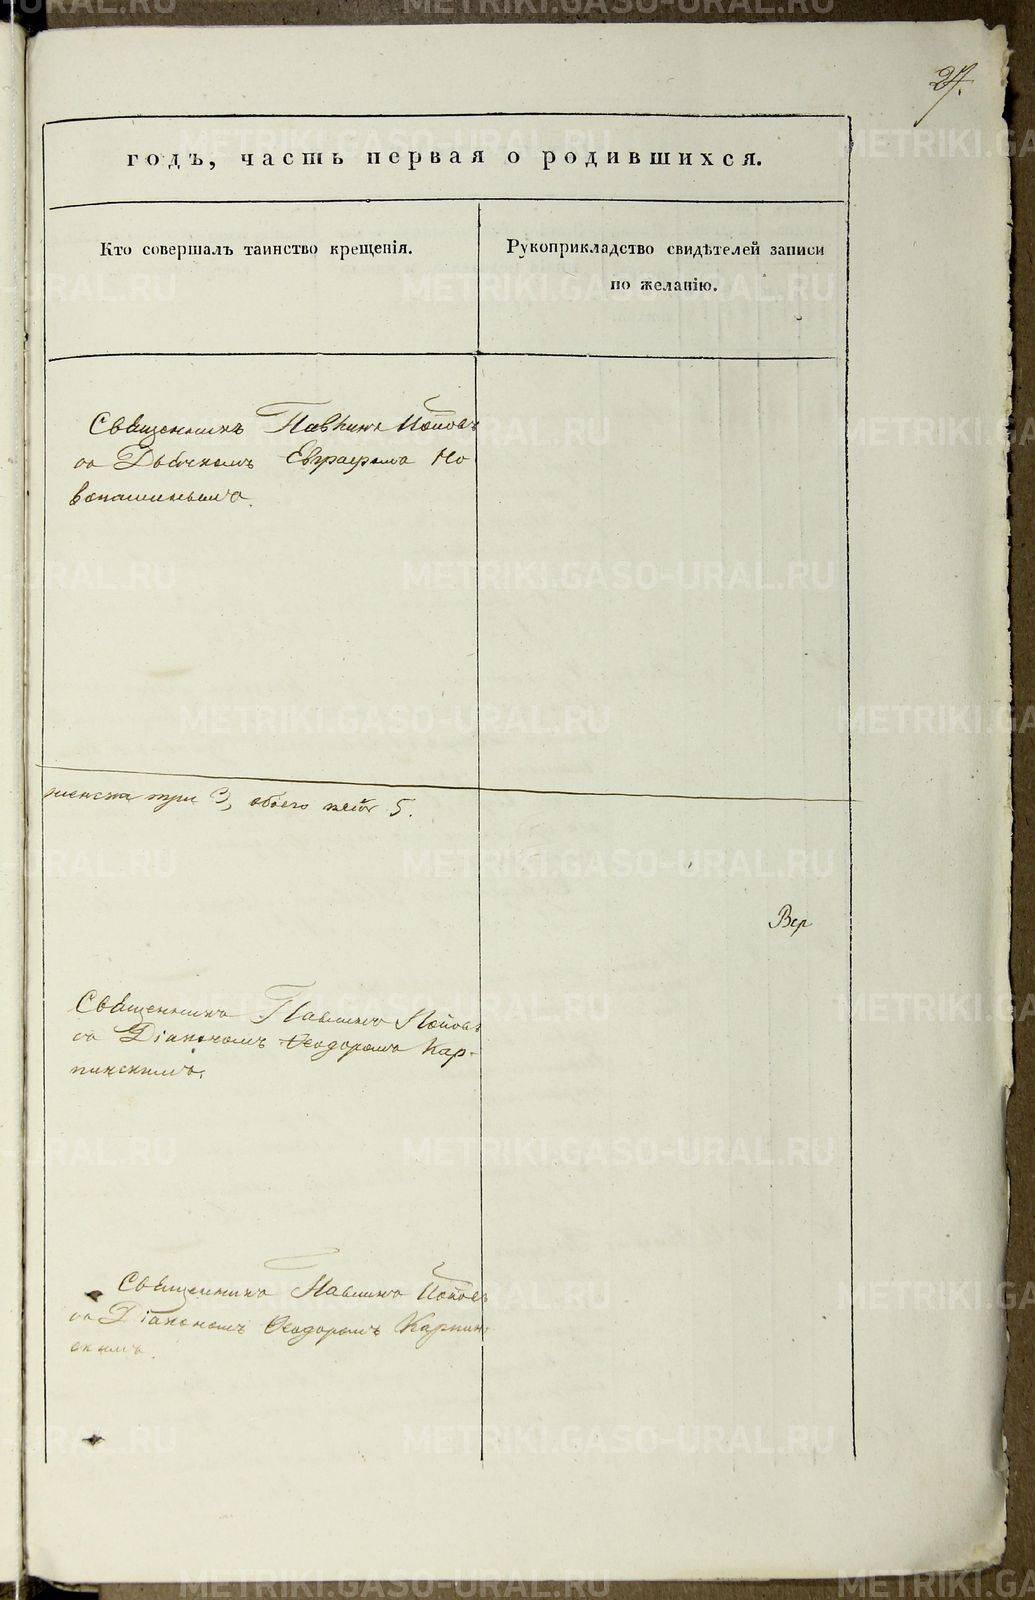 27.
годъ, часть первая о родившихся.
Кто совершалъ таинство крещенія.
Рукоприкладство свидѣтелей записи
по желанію.
Священникъ Павлинъ Поповъ
съ Дьячкомъ Евграфомъ Но
вопашинымъ.
женска три 3, обоего 5.
Вер
Священникъ Павлинъ Поповъ
съ Діакономъ Ѳеодоромъ Кар-
пинскимъ.
Священникъ Павлинъ Поповъ
съ Діакономъ Ѳеодоромъ Карпин
скимъ.
METRIKI.GASO-URAL.RU